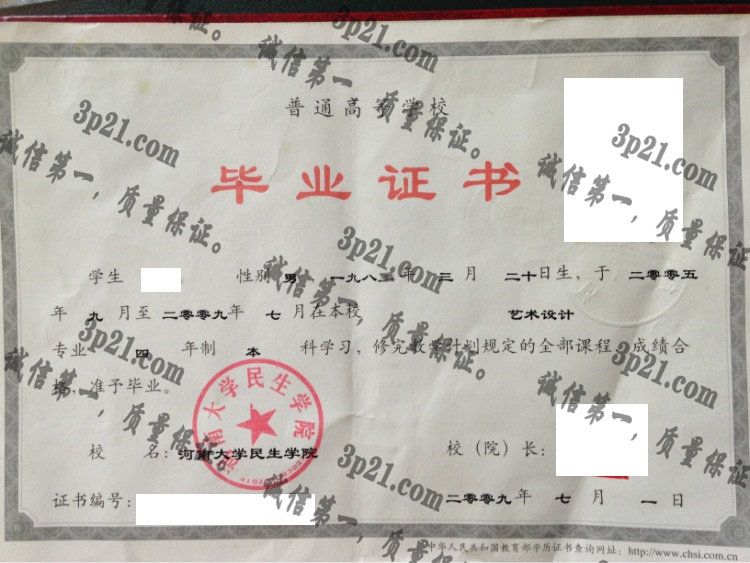 普通高等学校
毕业证书
学生 性别 男 一九八三 年 三 月 二十日生,于 二零零五
年 九 月至 二零零九年 七 月在本校 艺术设计
专业 四 年制 本 科学习,修完教学计划规定的全部课程,成绩合
格,准予毕业。
校 名: 河南大学民生学院
校(院)长:
证书编号:
二零零九年 七 月 一日
中华人民共和国教育部学历证书查询网址: http://www.chsi.com.cn
河南大学民生学院
3p21.com
诚信第一,质量保证。
3p21.com
诚信第一,质量保证。
3p21.com
诚信第一,质量保证。
3p21.com
诚信第一,质量保证。
3p21.com
诚信第一,质量保证。
3p21.com
诚信第一,质量保证。
3p21.com
诚信第一,质量保证。
3p21.com
诚信第一,质量保证。